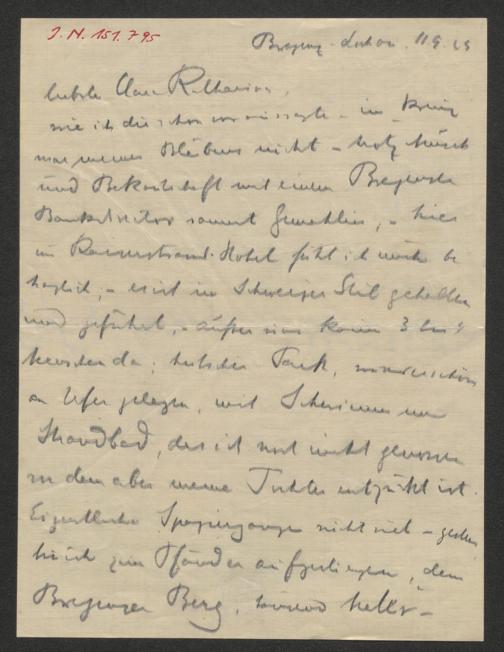 J.N. 151.795
Bregenz-Lochau. 11 9. 23
liebste Clara Katharina,
wie ich dir schon voraussagte – im "Kreuz"
war meines Bleibens nicht – trotz
und Bekanntschaft mit einem Bregenzer
Bankdirektor sammt Gemahlin, – hier
im Kaiserstrand-Hotel fühl ich mich be
haglich, – es ist im Schweizer Stil gehalten
und geführt, – außer uns kaum 3 bis 4
Menschen da; hübscher Park, wunderschön
am Ufer gelegen, mit Schwimm und
Strandbad, das ich noch nicht genossen
von dem aber meine Tochter entzückt ist.
Eigentliche Spaziergänge nicht viel – gestern
bin ich zum Pfänder aufgestiegen, dem
Bregenzer Berg, tausend Meter –